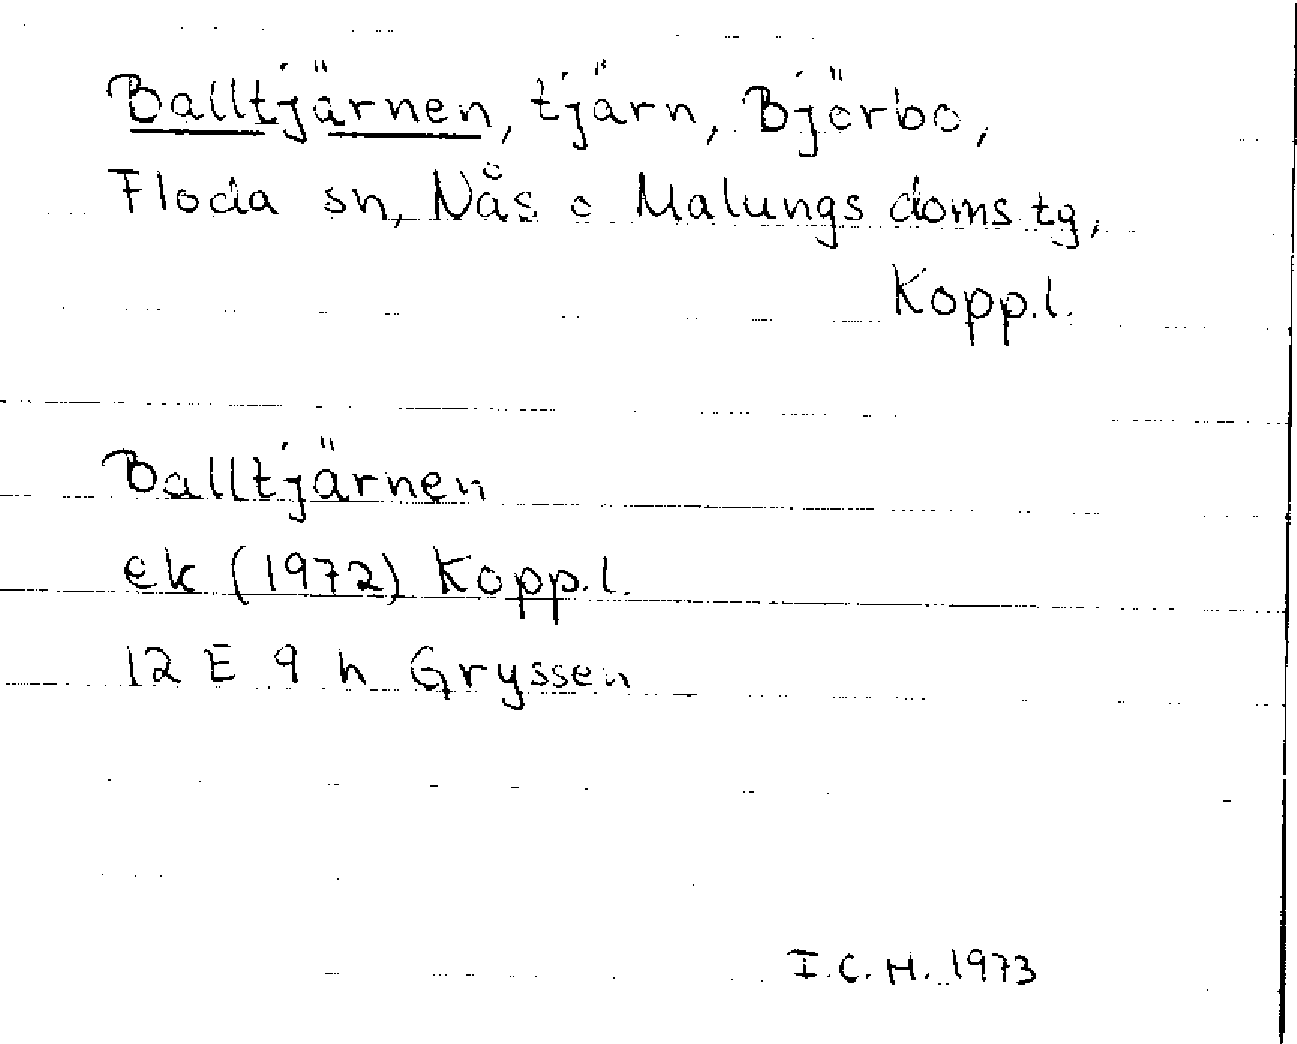 Balltjärnen, tjärn, Björbo,
Floda sn, Nås o Malungs doms.tg,
Kopp.l.
Balltjärnen
ek (1972) Kopp.l.
12 E 9 h Gryssen
I.C.H. 1973